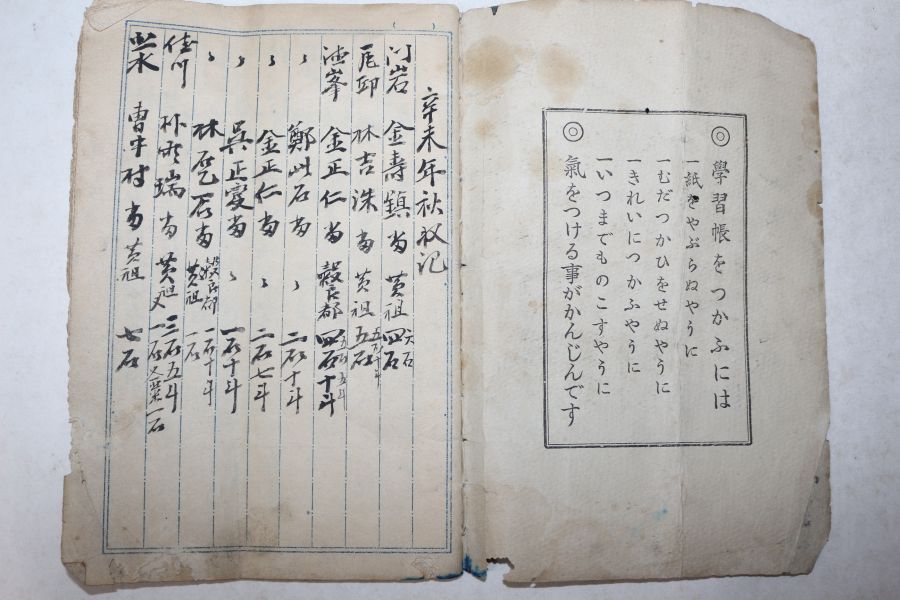 ◎學習帳をつかふには
一紙をやぶらぬやうに
一むだつかひをせぬやうに
一きれいにつかふやうに
一いつまでものこすやうに
◎氣をつける事がかんじんです
辛未年秋收记
门岩 金壽鎮 畓 黄租 四石 六石
林吉洙 畓 黄租 五石
德峯 金正仁 畓 四石十斗
〃 鄭此石 畓 二石十斗
〃 金正仁 畓 〃 二石七斗
〃 吳正 畓 〃 一石十斗
〃 林 石 畓 黄租 一石十斗 一石
佳川 朴 瑞 畓 黄租 三石五斗 又 一石
曹 村 畓 黄租 七石